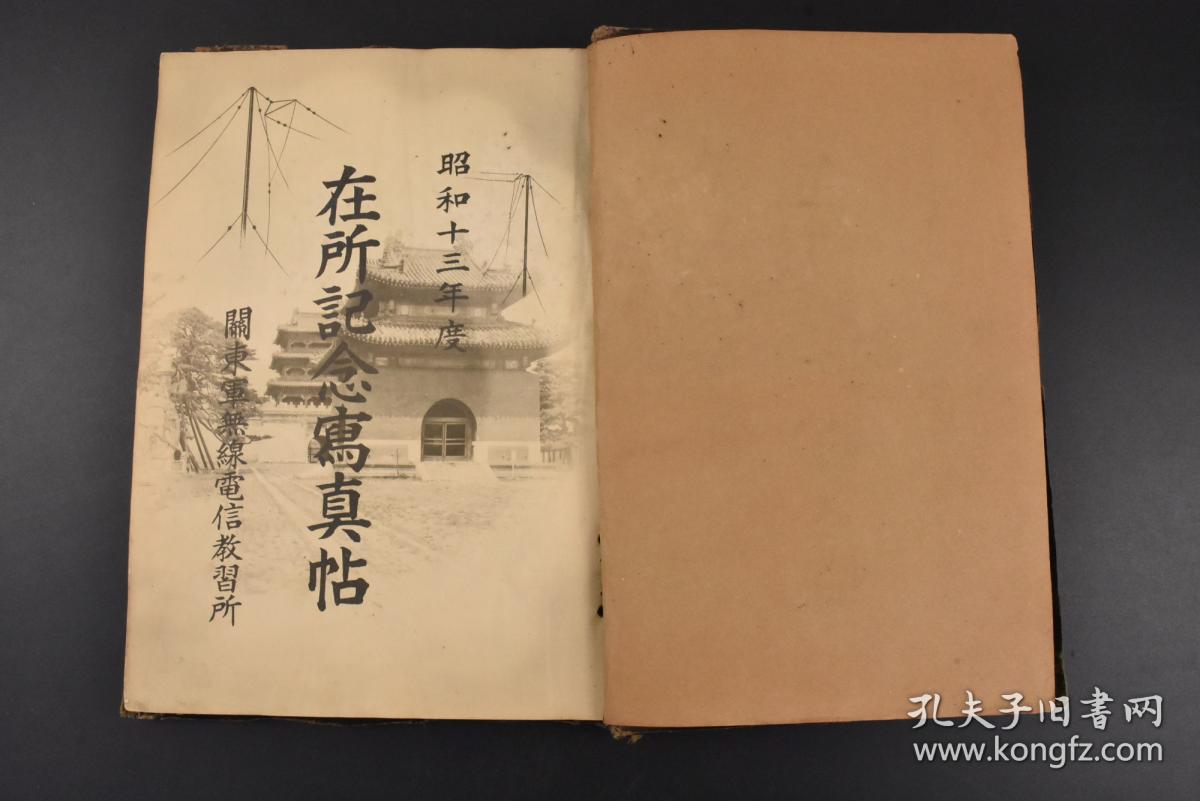 昭和十三年度
在所記念寫真帖
關東軍無線電信教習所
孔夫子旧書网
www.kongfz.com